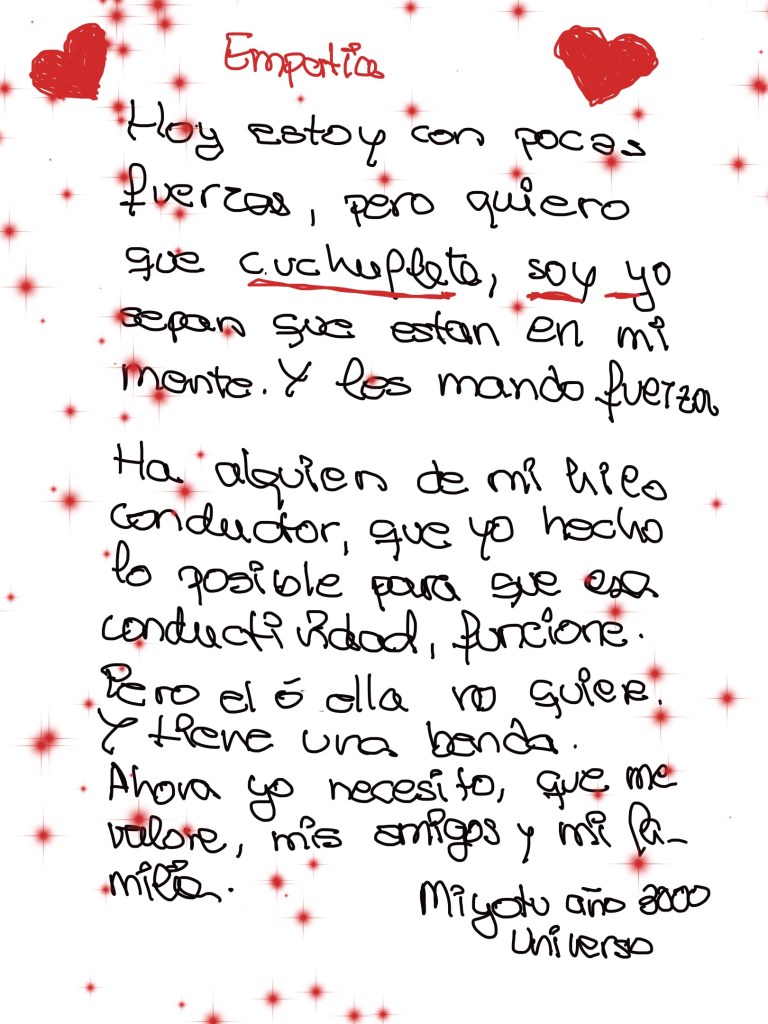 Empatia
Hoy estoy con pocas
fuerzas, pero quiero
que cuchufleta, soy yo
sepan que estan en mi
mente. Y les mando fuerza
Ha alguien de mi hilo
conductor, que yo hecho
lo posible para que esa
conductividad, funcione.
Pero el ó ella no quiere.
Y tiene una benda.
Ahora yo necesito, que me
valore, mis amigos y mi fa-
milia.
Miyotu año 3000
Universo